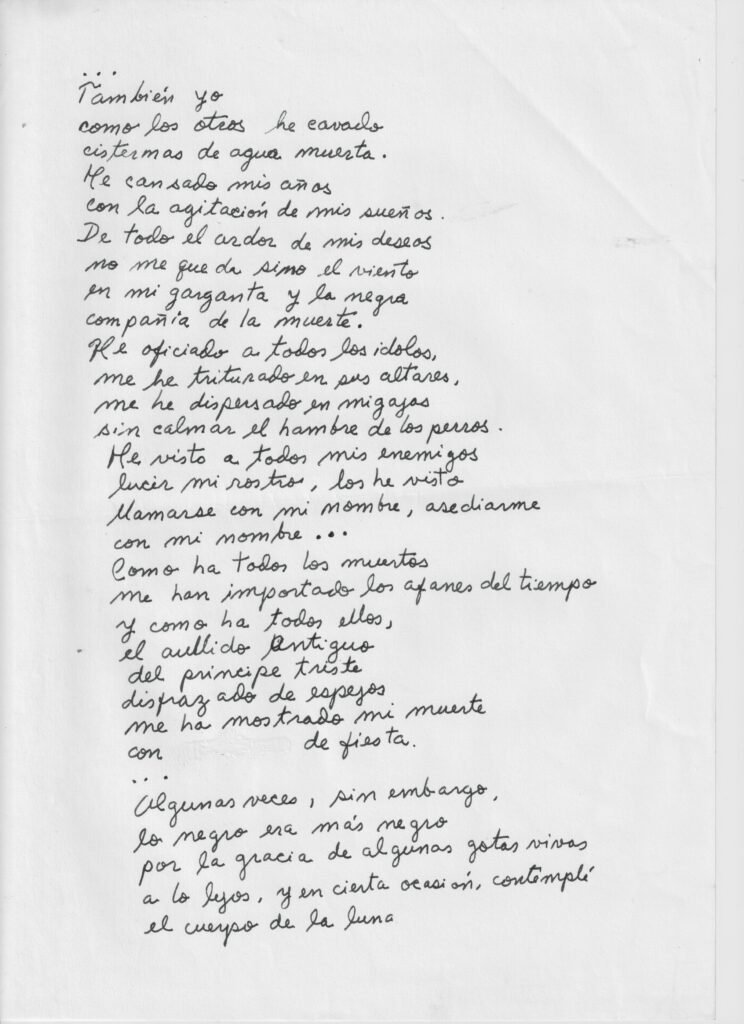 ...
También yo
como los otros he cavado
cistermas de agua muerta.
He cansado mis años
con la agitación de mis sueños.
De todo el ardor de mis deseos
no me queda sino el viento
en mi garganta y la negra
compañia de la muerte.
He oficiado a todos los idolos,
me he triturado en sus altares,
me he dispersado en migajas
sin calmar el hambre de los perros.
He visto a todos mis enemigos
lucir mi rostro, los he visto
llamarse con mi nombre, asediarme
con mi nombre...
Como ha todos los muertos
me han importado los afanes del tiempo
y como ha todos ellos,
el aullido Antiguo
del principe triste
disfrazado de espejos
me ha mostrado mi muerte
con de fiesta.
...
Algunas veces, sin embargo,
lo negro era más negro
por la gracia de algunas gotas vivas
a lo lejos, y en cierta ocasión, contemplé
el cuerpo de la luna